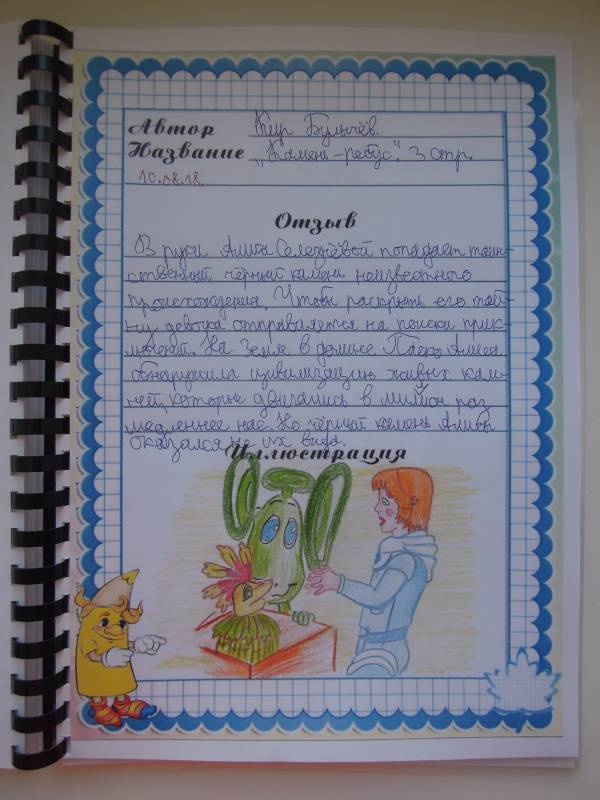 Автор Кир Булычёв.
Название „Камень-ребус". 3 стр.
10.08.18.
Отзыв
В руки Алисы Селезнёвой попадает таин-
ственный чёрный камень неизвестного
происхождения. Чтобы раскрыть его тай-
ну девочка отправляется на поиски прик-
лючений. На Земле в долине Паско Алиса
обнаружила цивилизацию живых кам-
ней, которые двигались в милион раз
медленнее нас. Но чёрный камень Алисы
оказался не их вида.
Иллюстрация